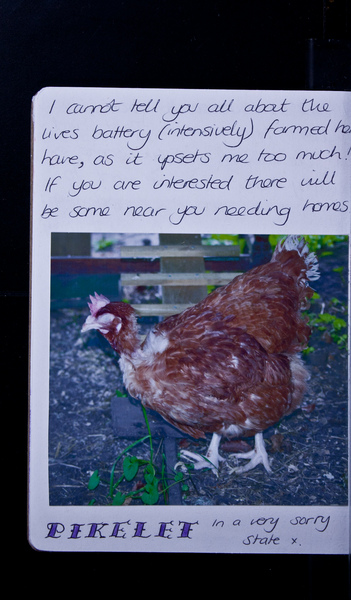 I cannot tell you all about the
lives battery (intensively) farmed
have, as it upsets me too much!
If you are interested there will
be some near you needing homes
PIKELET in a very sorry
state x.